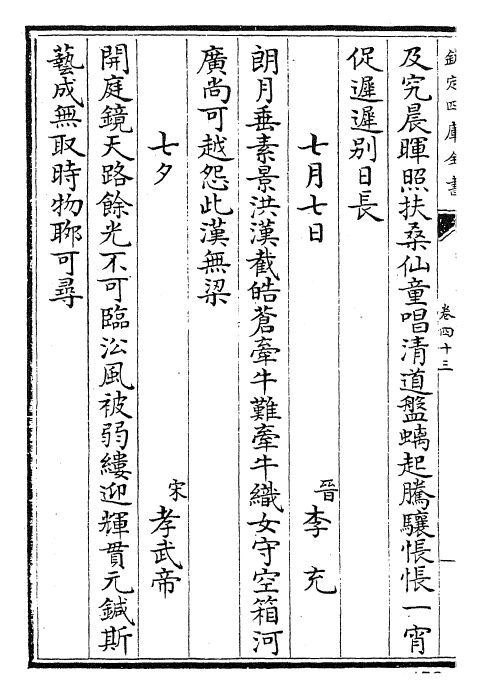 欽定四庫全書
卷四十三
及究晨暉照扶桑仙童唱清道盤螭起騰驤悵悵一宵
促遲遲别日長
七月七日 晉李充
朗月垂素景洪漢截皓蒼牽牛難牽牛織女守空箱河
廣尚可越怨此漢無梁
七夕 宋孝武帝
開庭鏡天路餘光不可臨㳂風被弱縷迎輝貫元鍼斯
藝成無取時物聊可尋